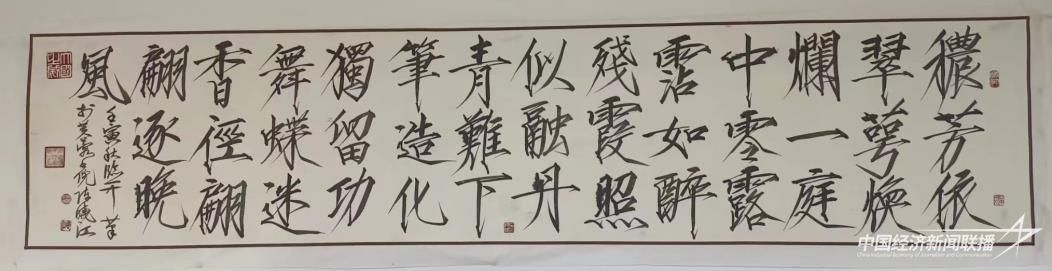 穠芳依
翠萼煥
爛一庭
中零露
霑如醉
殘霞照
似融丹
青難下
筆造化
獨留功
舞蝶迷
香徑翩
翩逐晚
風
壬寅秋
中国经济新闻联播
China Industrial Economy of Journalism and Communication